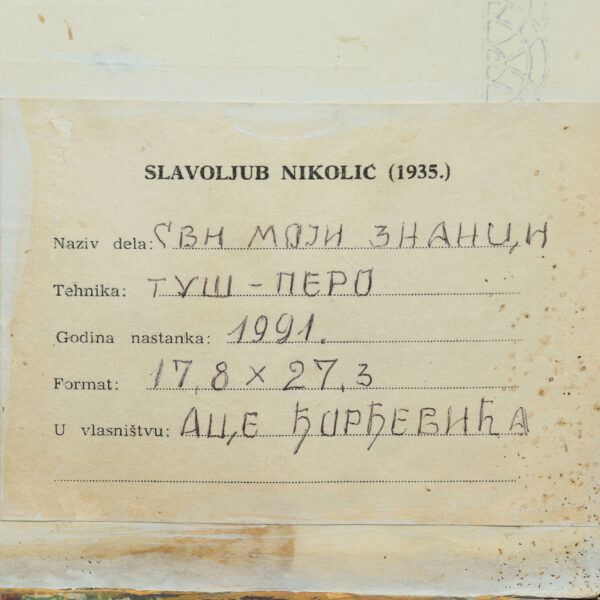 SLAVOLJUB NIKOLIĆ (1935.)
Naziv dela: СВИ МОЈИ ЗНАНЦИ
Tehnika: ТУШ - ПЕРО
Godina nastanka: 1991.
Format: 17,8 x 27,3
U vlasništvu: АЦЕ ЂОРЂЕВИЋА